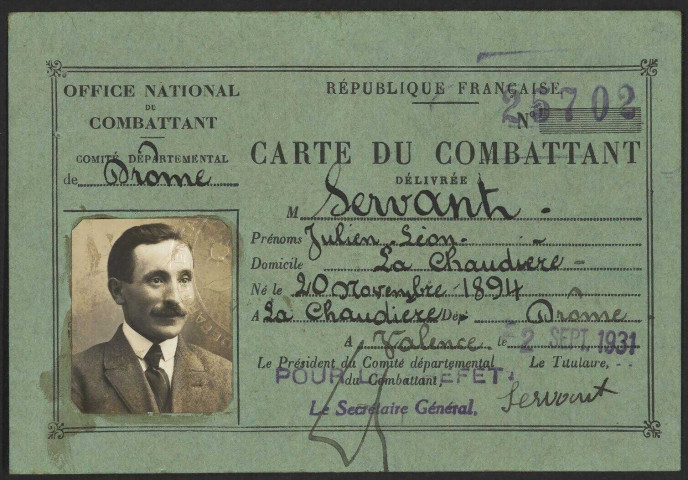 OFFICE NATIONAL
DU
COMBATTANT
COMITÉ DÉPARTEMENTAL
de Drôme
RÉPUBLIQUE FRANÇAISE
N° 25702
CARTE DU COMBATTANT
DÉLIVRÉE À
M Servant
Prénoms Julien Léon
Domicile La Chaudiere
Né le 20 Novembre 1894
A La Chaudiere Dép. Drôme
A Valence le 2 SEPT. 1931
Le Président du Comité départemental Le Titulaire,
du Combattant,
POUR LE PREFET,
Le Secrétaire Général,
Servant